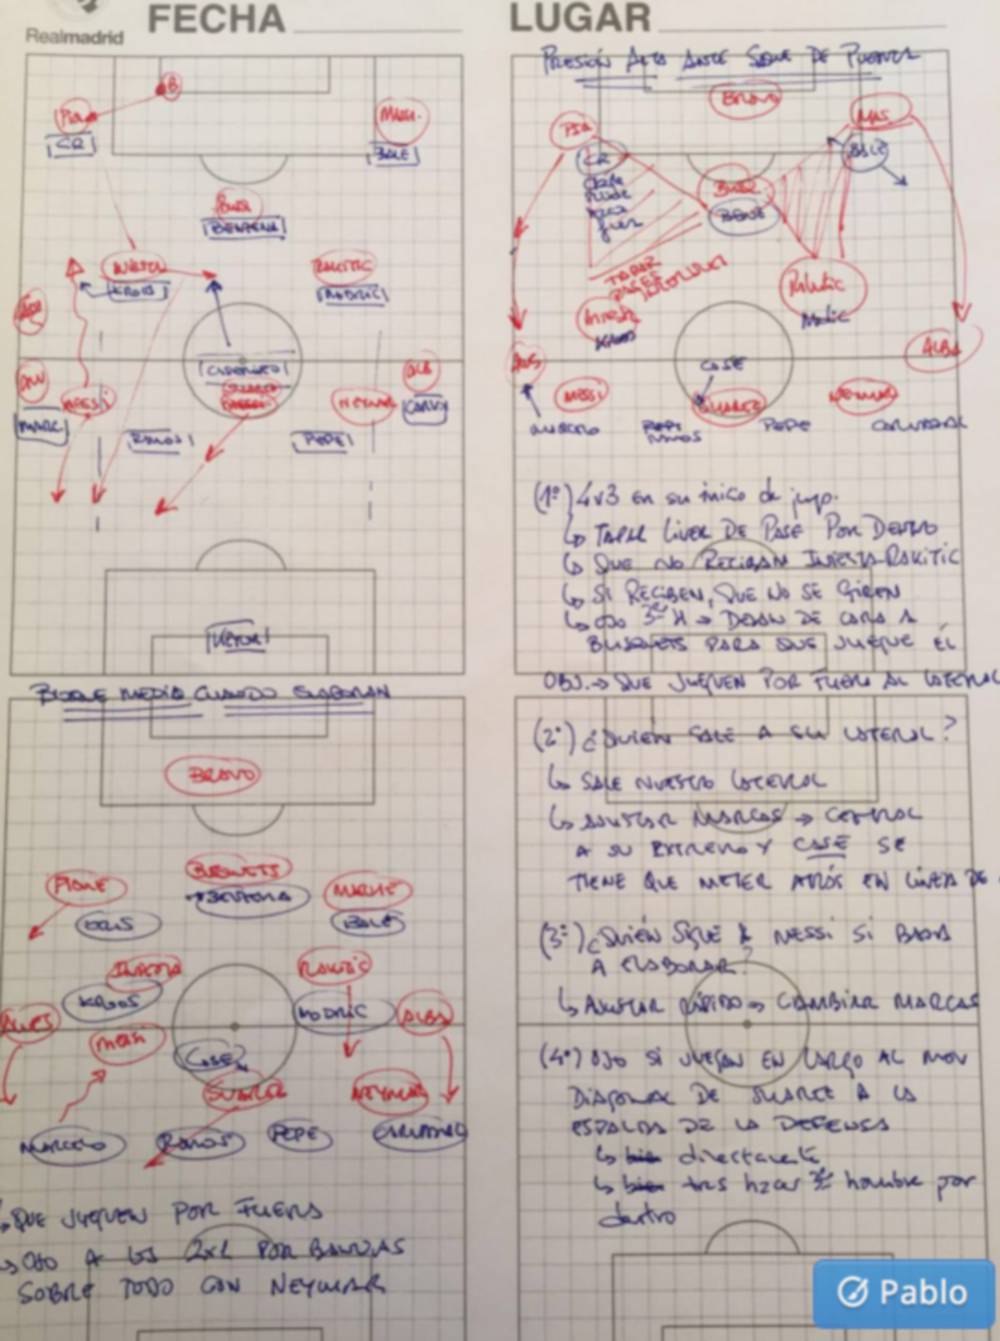 Realmadrid
FECHA
LUGAR
B
CR
BALE
BENZEMA
KROOS
RAKITIC
MODRIC
CASEMIRO
NEYMAR
RAMOS
PEPE
BLOQUE MEDIO CUANDO ELABORAN
BRAVO
BUSQUETS
BENZEMA
PIQUE
BALE
INIESTA
KROOS
RAKITIC
MODRIC
ALVES
ALBA
MESSI
CASE
SUAREZ
NEYMAR
MARCELO
RAMOS
PEPE
CARVAJAL
QUE JUEGUEN POR FUERA
OJO A LOS 2x1 POR BANDAS
SOBRE TODO CON NEYMAR
PRESIÓN ALTA ANTE SAQUE DE PUERTA
BRAVO
MAS
CR
BALE
BUSQ
TAPAR
PASES
Rakitic
CASE
ALBA
MESSI
SUAREZ
NEYMAR
MARCELO
RAMOS
PEPE
CARVAJAL
(1º) 4v3 en su inicio de juego.
TAPAR LINEA DE PASE POR DENTRO
QUE NO RECIBAN INIESTA-RAKITIC
SI RECIBEN, QUE NO SE GIREN
OJO 3er H → DEJAN DE CARA A
BUSQUETS PARA QUE JUEGUE ÉL
OBJ. → QUE JUEGUEN POR FUERA AL LATERAL
(2º) ¿QUIÉN SALE A SU LATERAL?
SALE NUESTRO LATERAL
AJUSTAR MARCAS → CENTRAL
A SU EXTREMO Y CASE SE
TIENE QUE METER ATRÁS EN LÍNEA DE
(3º) ¿QUIÉN SIGUE A MESSI SI BAJA
A ELABORAR?
AJUSTAR RÁPIDO → CAMBIAR MARCAS
(4º) OJO SI JUEGAN EN LARGO AL MOV
DIAGONAL DE SUAREZ A LA
ESPALDA DE LA DEFENSA
bien directamente
bien tras hacer 3er hombre por
dentro
Pablo